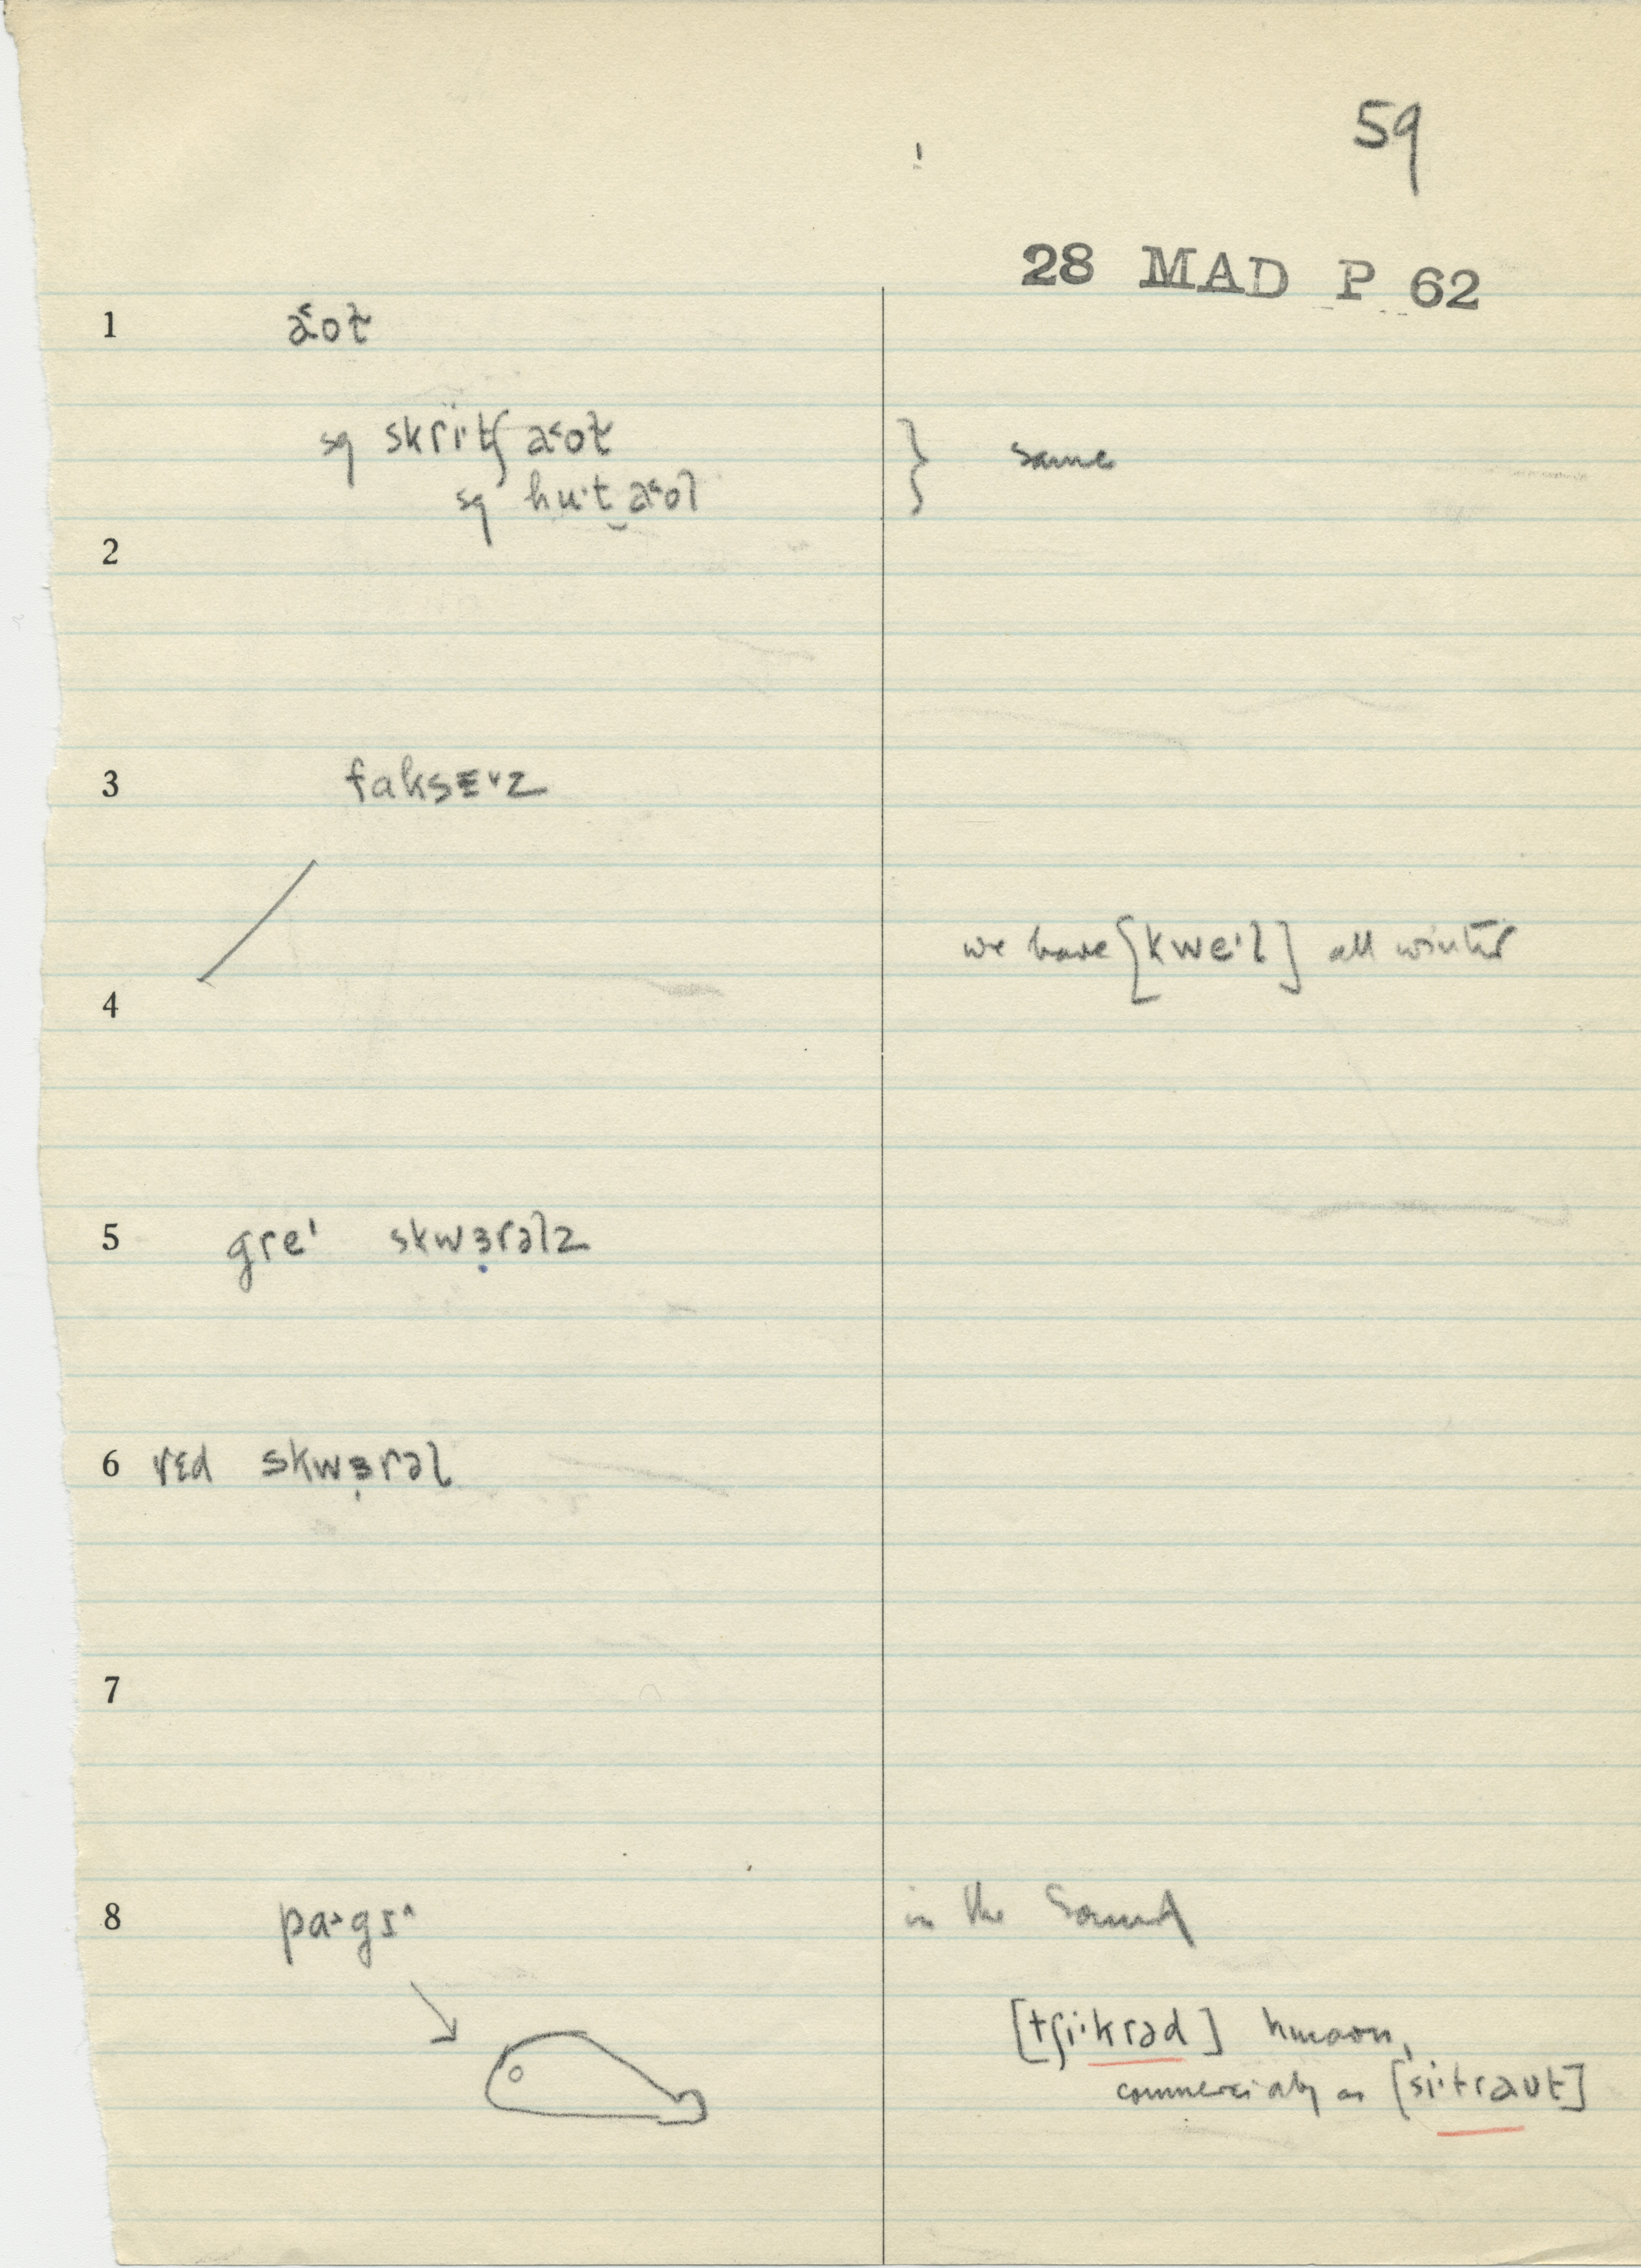 59
28 MAD P 62
1 a˂oɫ
sq skri·tʃ a˂oɫ } same
sq hu·t‿a˂ol
2
3 faksɛ˅z
we have [kwe·l] all winter
4
5 gre' skwɜ̣rəlz
6 rɛd skwɜ̣rəl
7
8 pa˃gɪ˄ in the Sound
[tʃi·krəd] known,
commercially as [si·traut]